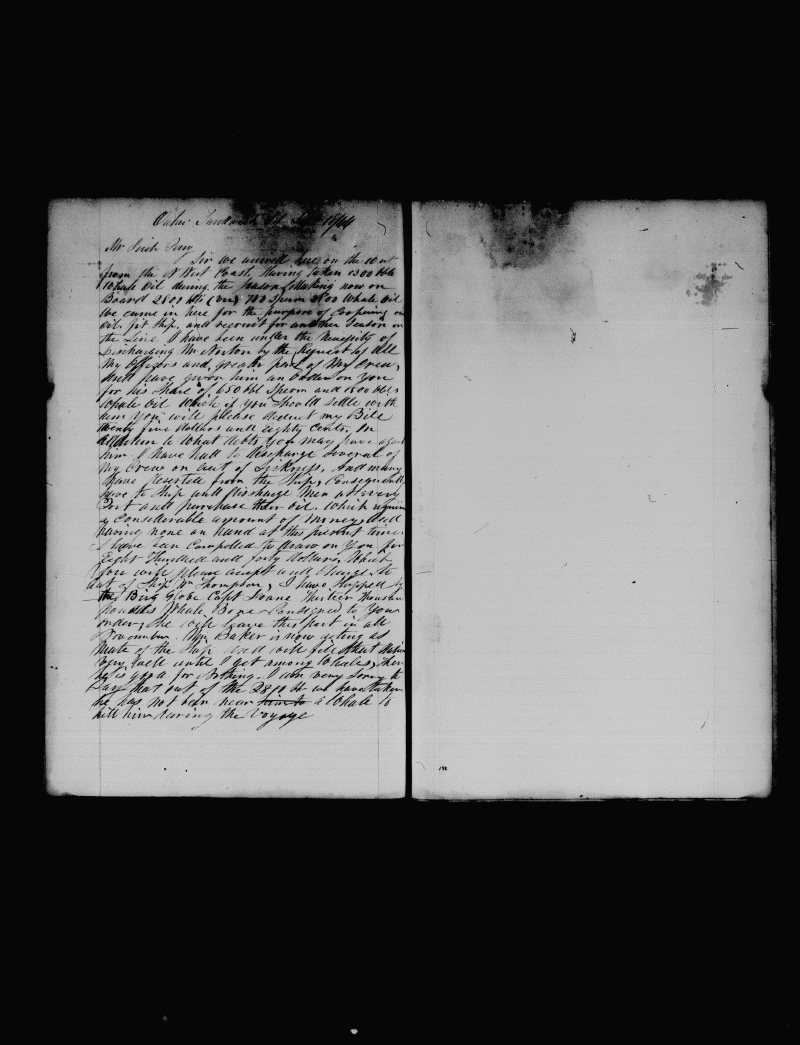 Oahu Sandwich 1844
Mr
Sir we arrived here on the
from the N West Coast, Having taken 1300 bbls
Whale Oil during the season, Making now on
Board 2800 bbls 700 Sperm 2100 Whale Oil
We came in here for the purpose of Coopering
oil, fit ship, and recruit for another season on
the Line I have been under the Necessity of
Discharging Mr Norton by the Request of All
My Officers and greater part of My Crew,
And have given him an Order on You
for his Share of 650 bbl Sperm and 1800 bbls
Whale Oil Which if you Should settle with
him You will please deduct my Bill
twenty five dollars and eighty Cents, In
addition to What debts You may have against
him I have had to discharge several of
My Crew on Act of Sickness, And many
Have deserted from the Ship, Consequently
have to Ship and Discharge Men at every
Port and purchase their oil. Which
a Considerable amount of Money, And
having none on hand at this present time
I have been Compelled to draw on You for
Eight Hundred and forty dollars, Which
You will please accept and Charge to
Act of Ship Wm Thompson, I have Shipped by
the Brig Globe Capt Doane Thirteen Thousand
pounds Whale Bone Consigned to Your
order, She will leave this port in all
November. Mr Baker is now acting as
Mate of the Ship and will fill that station
very well until I get among Whales, then
he is good for Nothing. I am very sorry to
say that out of the 2800 we have taken
he has not been near a Whale to
kill him during the Voyage